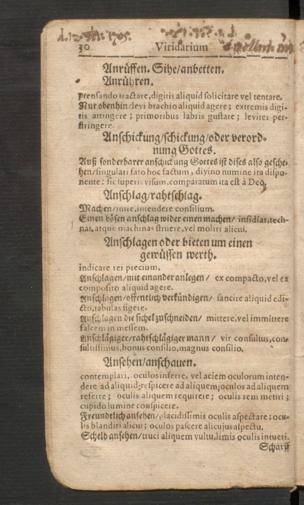 30 Viridarium
Anrüffen. Sihe/anbetten.
Anrühren.
prensando tractare, digitis aliquid solicitare vel tentare.
Nur obenhin/levi brachio aliquid agere; extremis digi-
tis attingere; primoribus labris gustare; leviter per-
stringere.
Anschickung/schickung/oder verord-
nung Gottes.
Auß sonderbarer anschickung Gottes ist dises also gesche-
hen/singulari fato hoc factum, divino numine ita dispo-
nente: sic superis visum, comparatum ita est à Deo.
Anschlag/rahtschlag.
Machen/inire, intendere consilium.
Einen bösen anschlag wider einen machen/ insidias, tech-
nas, atque machinas struere, vel moliri alicui.
Anschlagen oder bieten um einen
gewüssen werth.
indicare rei precium.
Anschlagen/mit einander anlegen/ ex compacto, vel ex
composito aliquid agere.
Anschlagen/offentlich verkündigen/ sancire aliquid edi-
cto, tabulas figere.
Anschlagen die sichel zuschneiden/ mittere, vel immittere
falcem in messem.
Anschlägiger/rahtschlägiger mann/ vir consultus, con-
sultissimus, bonus consilio, magnus consilio.
Ansehen/anschauen.
contemplari, oculos inferre, vel aciem oculorum inten-
dere ad aliquid; respicere ad aliquem; oculos ad aliquem
referre; oculis aliquem requirere; oculis rem metiri;
cupido lumine conspicere.
Freundtlich ansehen/placidissimis oculis aspectare: ocu-
lis blandiri alicui; oculos pascere alicujus aspectu.
Scheld ansehen/truci aliquem vultu, limis oculis intueri.
Scharff